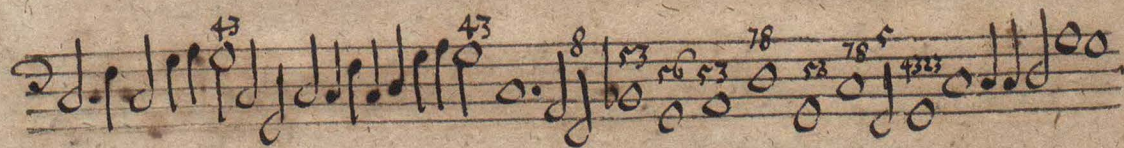 43 43 8 53 56 53 78 53 78 5 4323